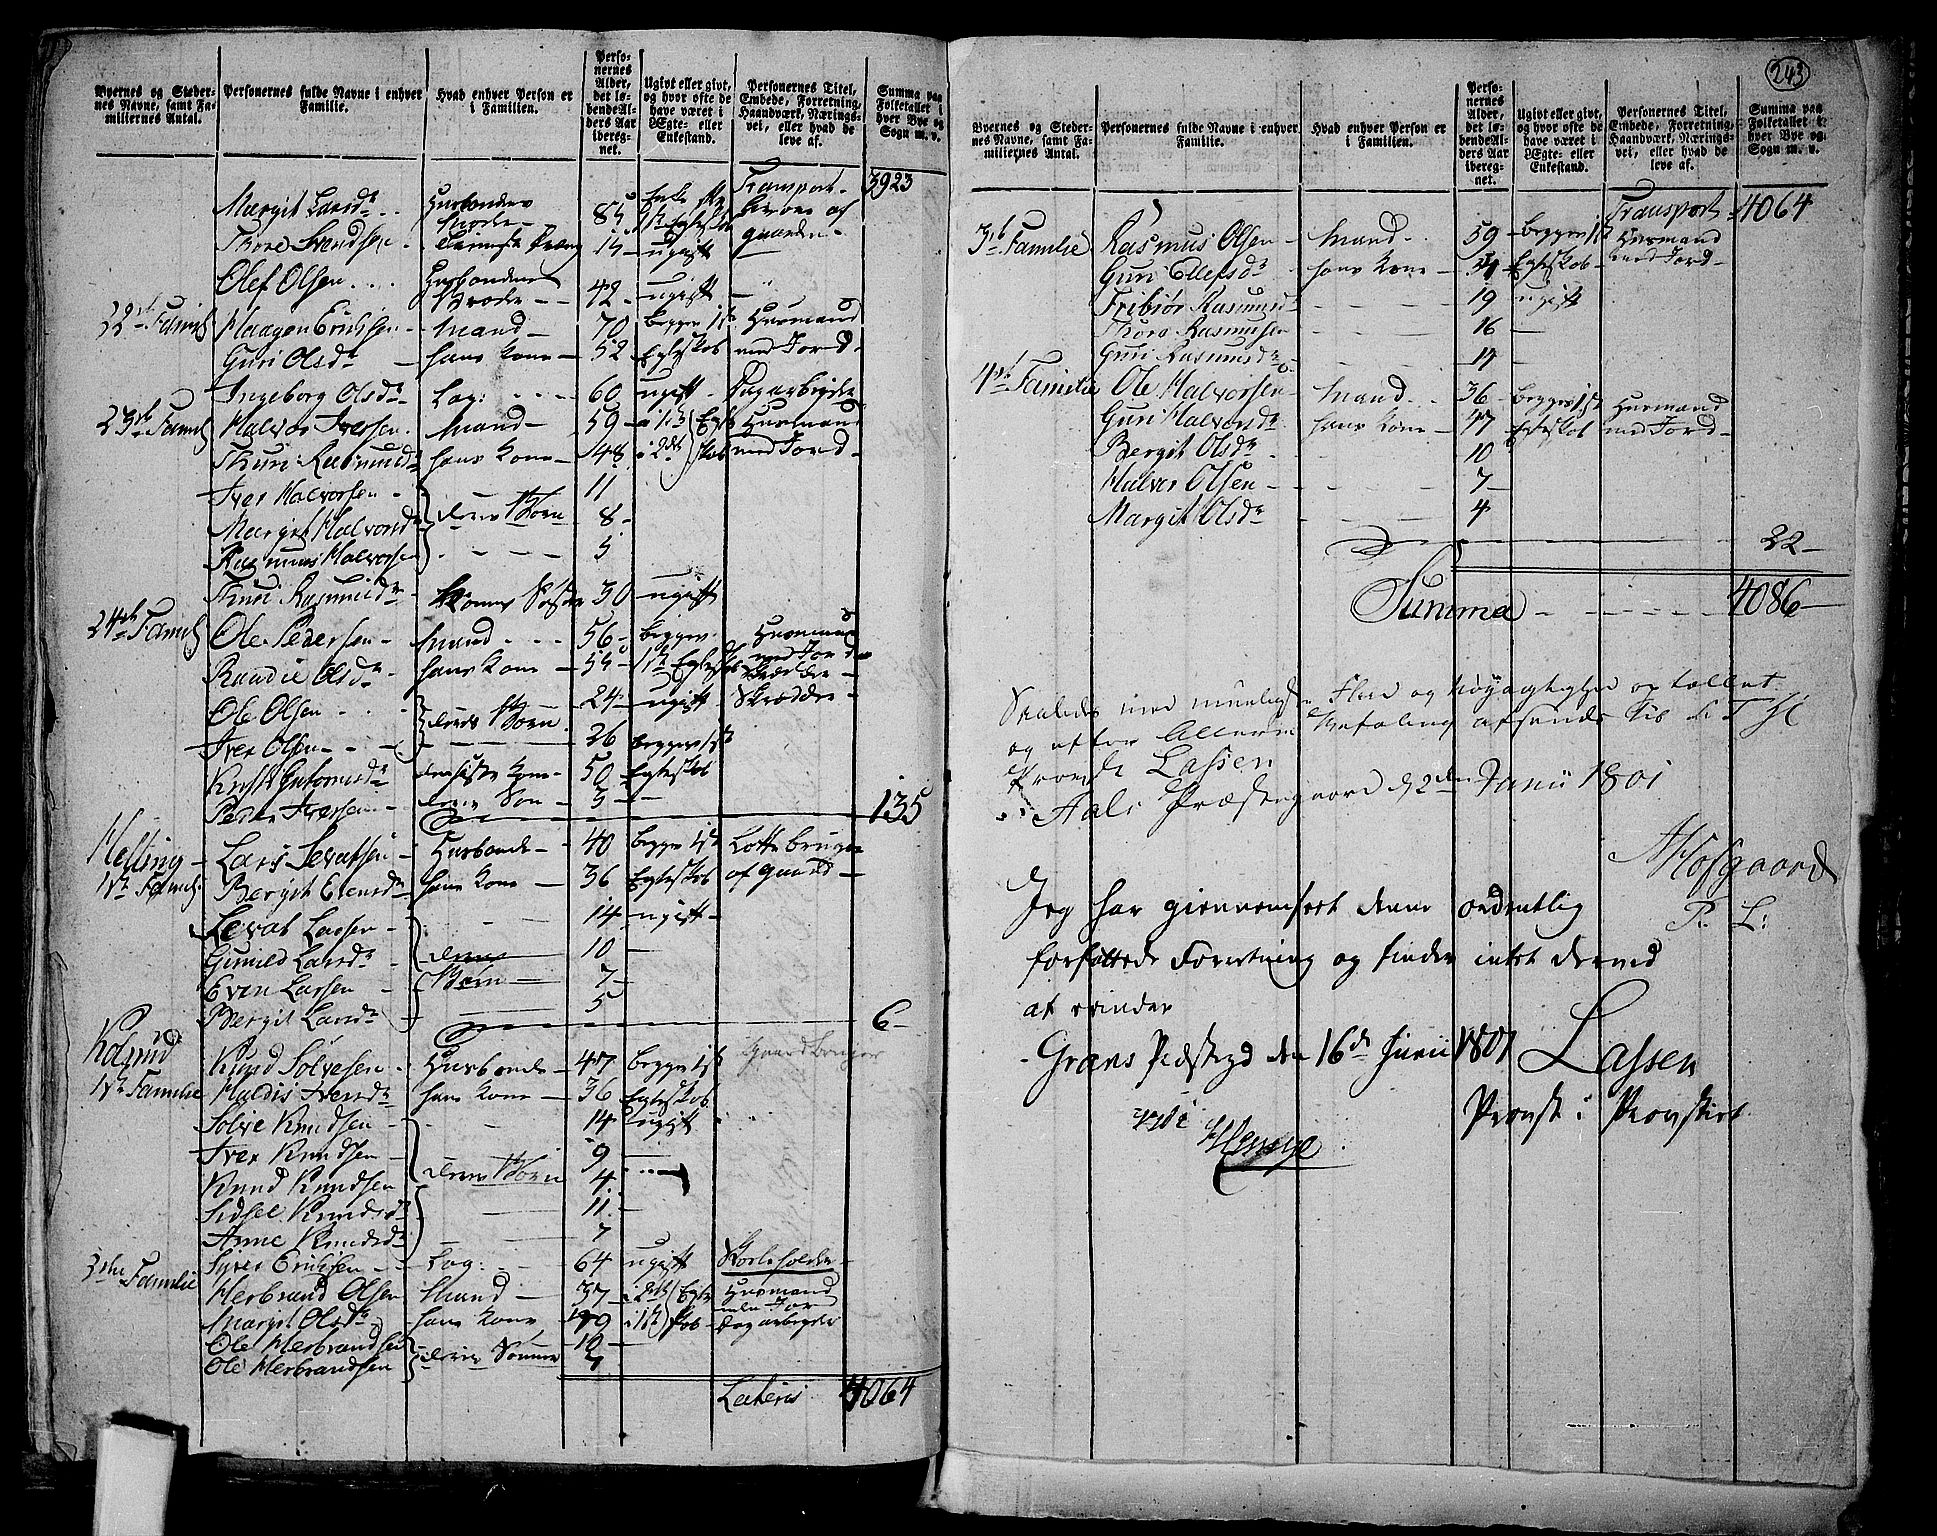 Byernes og Stedernes Navne, samt Familiernes Antal.
Personernes fulde Navne i enhver Familie.
Hvad enhver Person er i Familien.
Personernes Alder, det løbende Alders Aar iberegnet.
Ugivt eller givt, og hvor ofte de have været i Egte- eller Enkestand.
Personernes Titel, Embede, Forretning, Haandværk, Næringsvei, eller hvad de leve af.
Summa paa Folketallet i hver Bye og Sogn m. v.
Transport 3923
Margit Larsdr Husbondens Moder 85 Enke efter 1ste Egteskab
Thore Svendsen 15 ugift
Olef Olsen Husbondens Broder 42 ugift
22de Famil Haagen Erichsen Mand 70 begge 1ste Huusmand
Guri Olsdr hans Kone 52 Egteskab med Jord
Ingeborg Olsdr Log: 60 ugift Dagarbeyder
23de Famil Halvor Iversen Mand 59 Huusmand
Thuri Rasmusdr hans Kone 48 i 2det Egteskab med Jord
Iver Halvorsen 11
Margit Halvorsdr deres Børn 8
Rasmus Halvorsen 5
Thuri Rasmusdr Konens Søster 30 ugift
24de Famil Ole Pedersen Mand 56 begge Huusmand
Randie Olsdr hans Kone 55 1ste Egteskab med Jord
Ole Olsen deres Børn 24 ugift Skrædder
Iver Olsen 26 begge 1ste
Kone 50 Egteskab
Peder Iversen deres Søn 3
135
Helling Lars Sevatsen Husbonde 40 begge 1ste
1ste Famil Bergit Evensdr hans Kone 36 Egteskab af Gaard
Sevat Larsen 14 ugift
Gunild Larsdr deres 10
Even Larsen Børn 7
Bergit Larsdr 5
6
Knud Solvesen Husbonde 47 begge 1ste Gaard Bruger
1ste Familie Haldis Iversdr hans Kone 36 Egteskab
Solve Knudsen 14 ugift
Iver Knudsen 9
Knud Knudsen deres Børn 4
Sidsel Knudsdr 11
Anne Knudsdr 7
Syver Erichsen Log: 64 ugift Skoleholder
2den Familie Herbrand Olsen Mand 37 i 2det Egte Huusmand
Margit Olsdr hans Kone i 1ste skab Dagarbeyder
Ole Herbrandsen 10
Ole Herbrandsen deres Sønner 4
Lateris 4064
243
Byernes og Stedernes Navne, samt Familiernes Antal.
Personernes fulde Navne i enhver Familie.
Hvad enhver Person er i Familien.
Personernes Alder, det løbende Alders Aar iberegnet.
Ugivt eller givt, og hvor ofte de have været i Egte- eller Enkestand.
Personernes Titel, Embede, Forretning, Haandværk, Næringsvei, eller hvad de leve af.
Summa paa Folketallet i hver Bye og Sogn m. v.
Transport 4064
3de Familie Rasmus Olsen Mand 59 begge 1ste Huusmand
Guri Ellefsdr hans Kone 51 Egteskab med Jord
Fribiør Rasmusdr 19 ugift
Thore Rasmusen 16
Guri Rasmusdr 14
4de Familie Ole Halvorsen Mand 36 begge 1ste Huusmand
Guri Halvorsdr hans Kone 47 Egteskab med Jord
Bergit Olsdr 10
Halvor Olsen 7
Margit Olsdr 4
22
Summa 4086
Saaledes med mueligste Fliid og Nøyagtighed optællet
og efter Allern: Befaling afsendes til S. T. Hr
Provst Lassen
Aals Præstegaard d 2den Junii 1801
Hofgaard
P. L:
Jeg har giennemseet denne ordentlig
forfattede Forretning og finder intet derved
at erindre
Grans Præstegd den 16de Junii 1801 Lassen
Provst i Provstiet